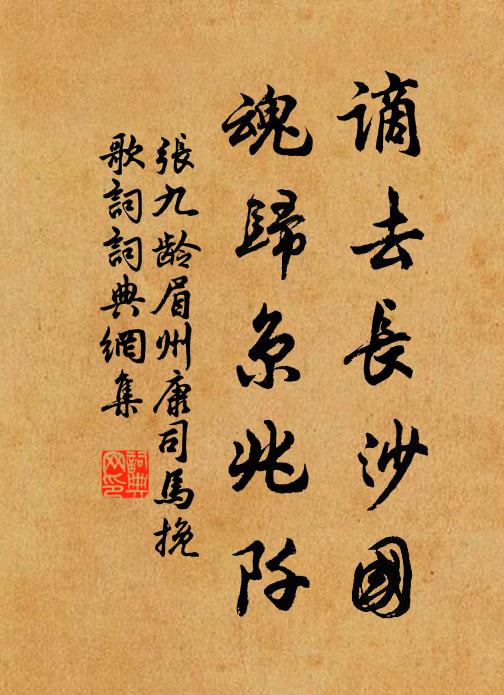 謫去長沙國
魂歸京兆阡
張九龄眉州康司馬挽
歌詞詞典網集
詞典
网印